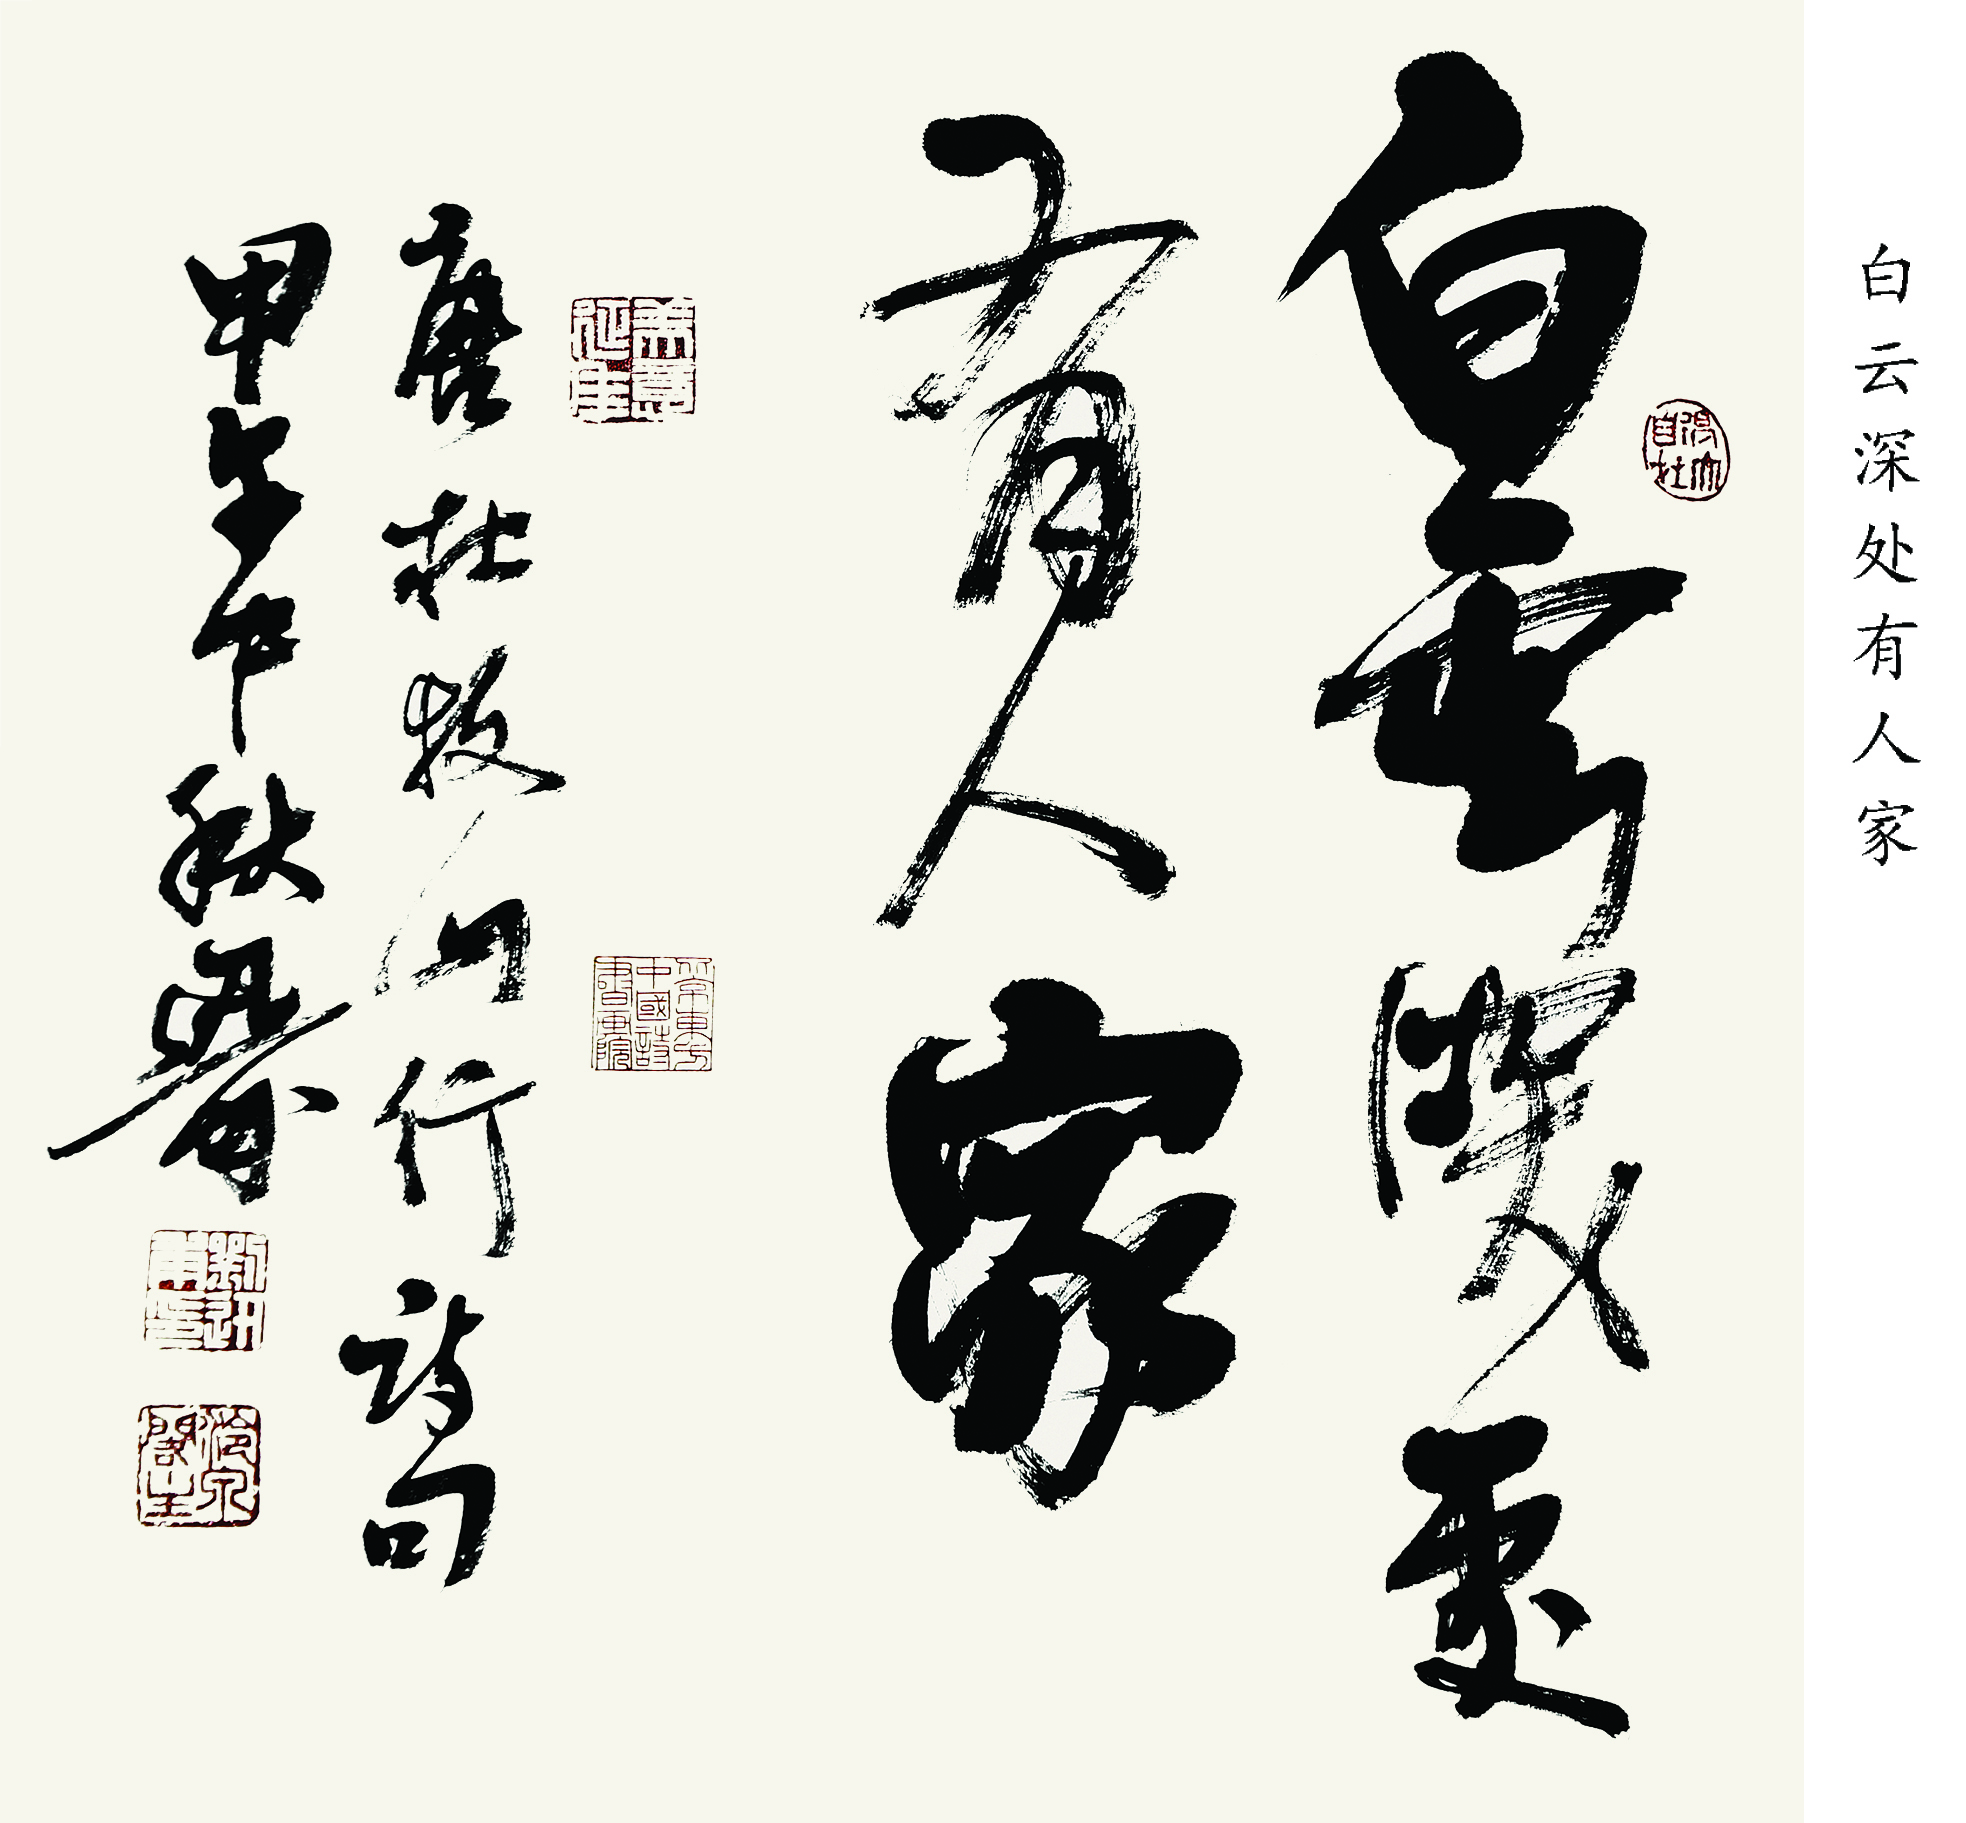 白云深处有人家
白雲深處
有人家
唐杜牧山行诗句
甲午中秋
中國詩書畫院